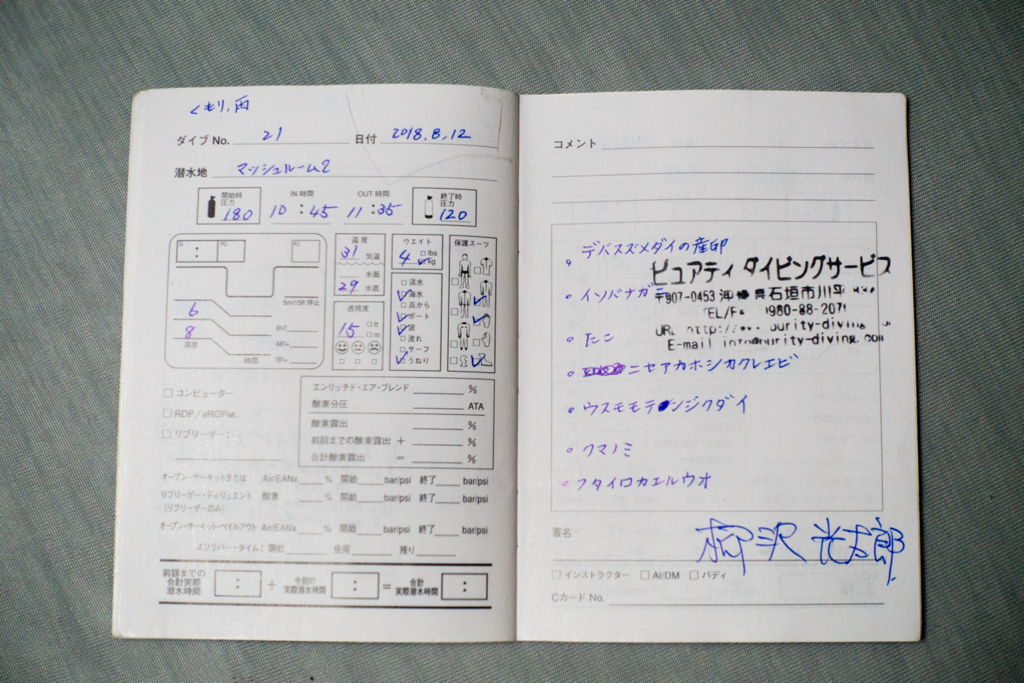 くもり、雨
ダイブ No. 21 日付 2018.8.12
潜水地 マッシュルーム2
開始時圧力 180 IN 時間 10:45 OUT 時間 11:35 終了時圧力 120
温度
31 気温
水面
29 水底
透視度
15
ウエイト
4 lbs
kg
淡水
海水
浜から
ボート
波
流れ
サーフ
うねり
保護スーツ
PG
PG
5m/15ft 停止
6
8
深度
RNT
ABT+
TBT=
時間
コンピューター
RDP/eRDPML
リブリーザー:
エンリッチド・エア・ブレンド %
酸素分圧 ATA
酸素露出 %
前回までの酸素露出 + %
合計酸素露出 = %
オープン・サーキットまたは Air/EANx % 開始 bar/psi 終了 bar/psi
リブリーザー・ディリュエント 酸素 % 開始 bar/psi 終了 bar/psi
(リブリーザーのみ)
オープン・サーキット・ベイルアウト Air/EANx % 開始 bar/psi 終了 bar/psi
スクラバー・タイム: 開始 使用 残り
前回までの合計実際潜水時間 : + 今回の実際潜水時間 : = 合計実際潜水時間 :
コメント
デバスズメダイの産卵
ピュアティ ダイビングサービス
イソバナガニ
〒907-0453 沖縄県石垣市川平
TEL/F 980-88-2071
たこ
URL http:// purity-diving
E-mail info@purity-diving.com
ニセアカホシカクレエビ
ウスモモテンジクダイ
クマノミ
フタイロカエルウオ
署名 柳沢 光太郎
インストラクター AI/DM バディ
Cカード No.